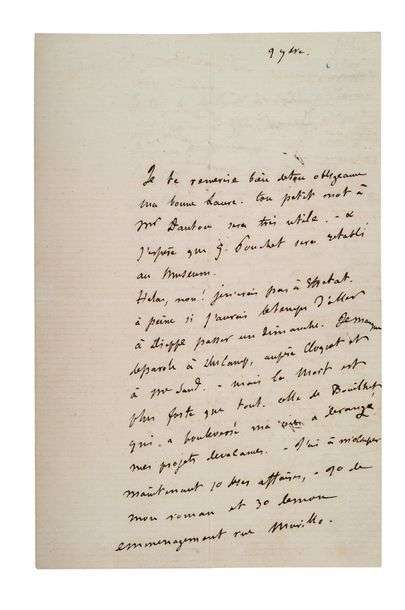 9 7bre.
Je te remercie bien de ton obligeance
ma bonne Laure. ton petit mot à
Mr Dantou sera très utile. - &
j'espère que g. Pouchet sera rétabli
au Museum.
Hélas, non! je n'irai pas à Etretat.
à peine si j'aurai le temps d'aller
à Dieppe passer un dimanche. Je manque
de parole à aussi, auprès Cloquet et
à Me Sand. - mais la Mort est
plus forte que tout. celle de Bouilhet
qui a bouleversé ma vie a dérangé
mes projets de vacances. - J'ai à m'occuper
maintenant 10 de ses affaires, - 20 de
mon roman et 30 de mon
emménagement rue Murillo.